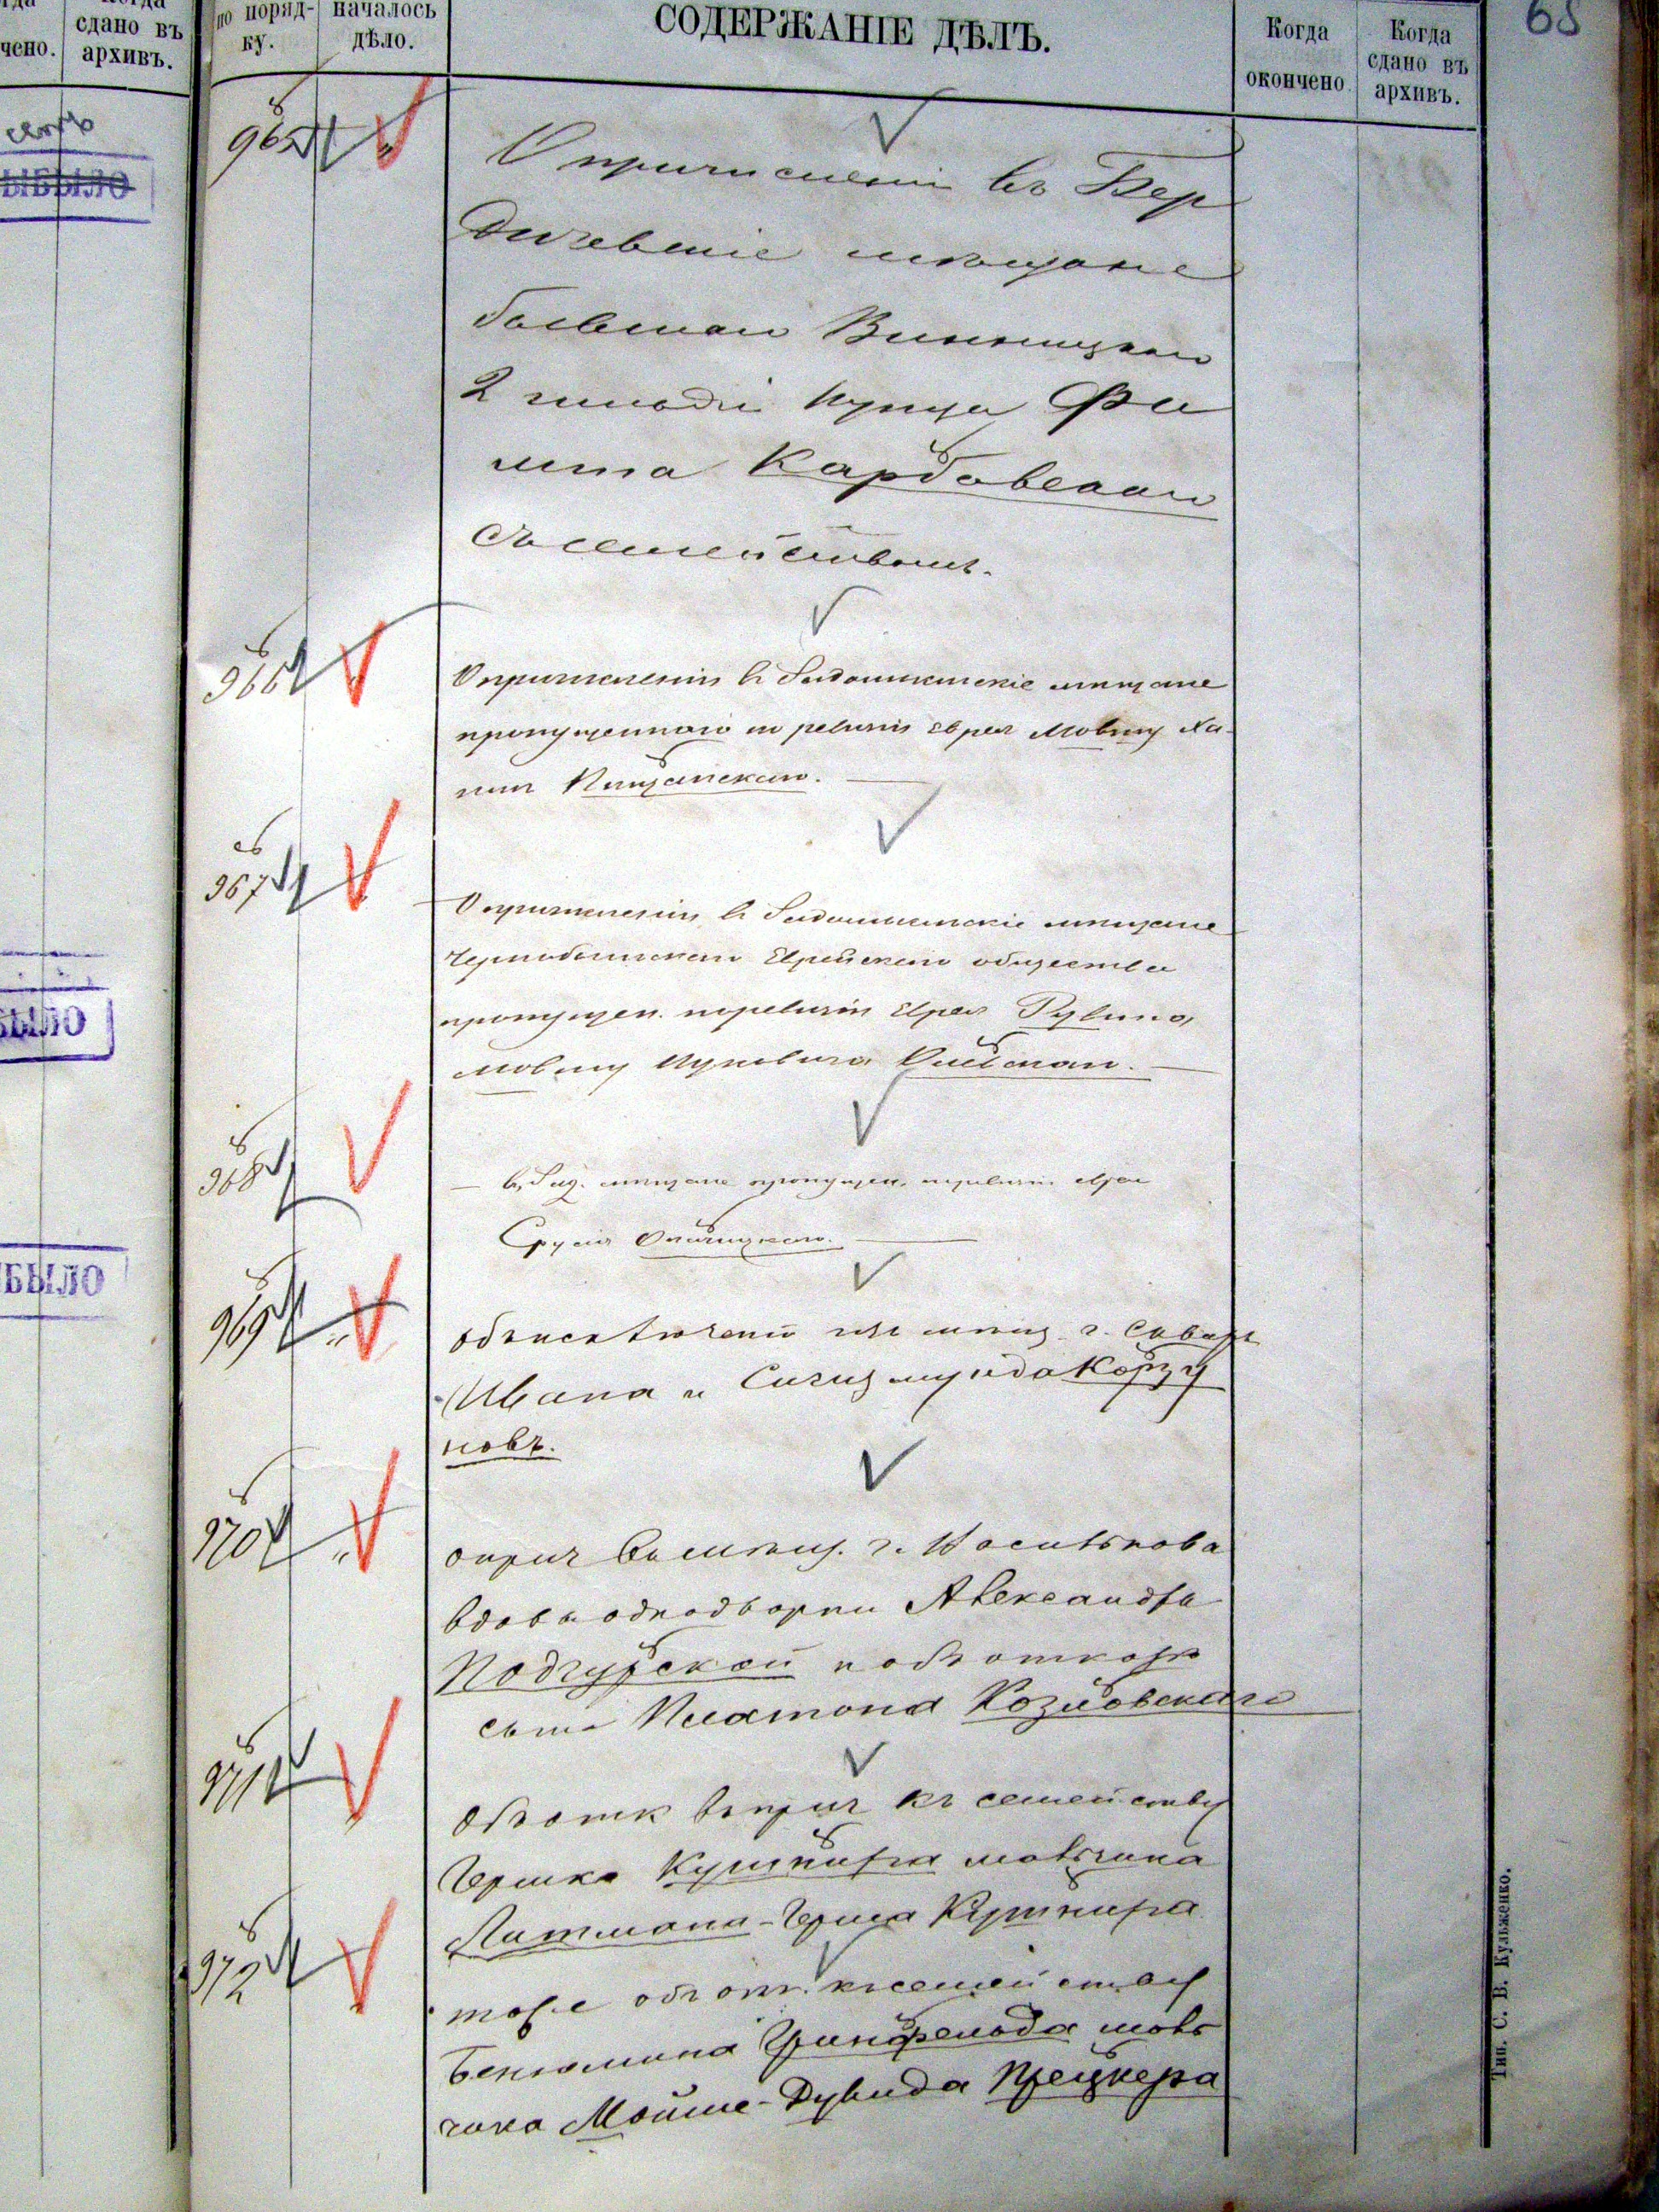 сдано въ
чено.
архивъ.
ЫБЫЛО
БЫЛО
БЫЛО
по поряд-
ку.
началось
дѣло.
СОДЕРЖАНІЕ ДѢЛЪ.
Когда
окончено
Когда
сдано въ
архивъ.
68
965
О причисленіи въ Бер
дичевскіе мѣщане
бывшаго Винницкаго
2 гильдіи купца
Карбовскаго
съ семействомъ.
966
О причисленіи въ мѣщане
пропущеннаго по ревизіи Еврея Мовшу Ха-
967
О причисленіи въ мѣщане
Чернобыльскаго Еврейскаго общества
пропущен. по ревизіи Еврея Рувина
Мовшу
968
— въ мѣщане пропущен. по ревизіи Еврея
Сруля
969
объ исключеніи изъ мѣщ. г. Сквиры
Ивана и Сигизмунда Корзу
новъ.
970
о прич въ мѣщ. г. Василькова
вдовы однодворки Александры
Подгурской и объ отказѣ
сына Платона Козловскаго
971
Объ отк въ прич къ семейству
Гершка Кушнира мальчика
Литмана-Герша Кушнира
972
тоже объ отк. къ семейству
Бенюмина Гринфельда маль
чика Мойше-Дувида Прецкера
Тип. С. В. Кульженко.